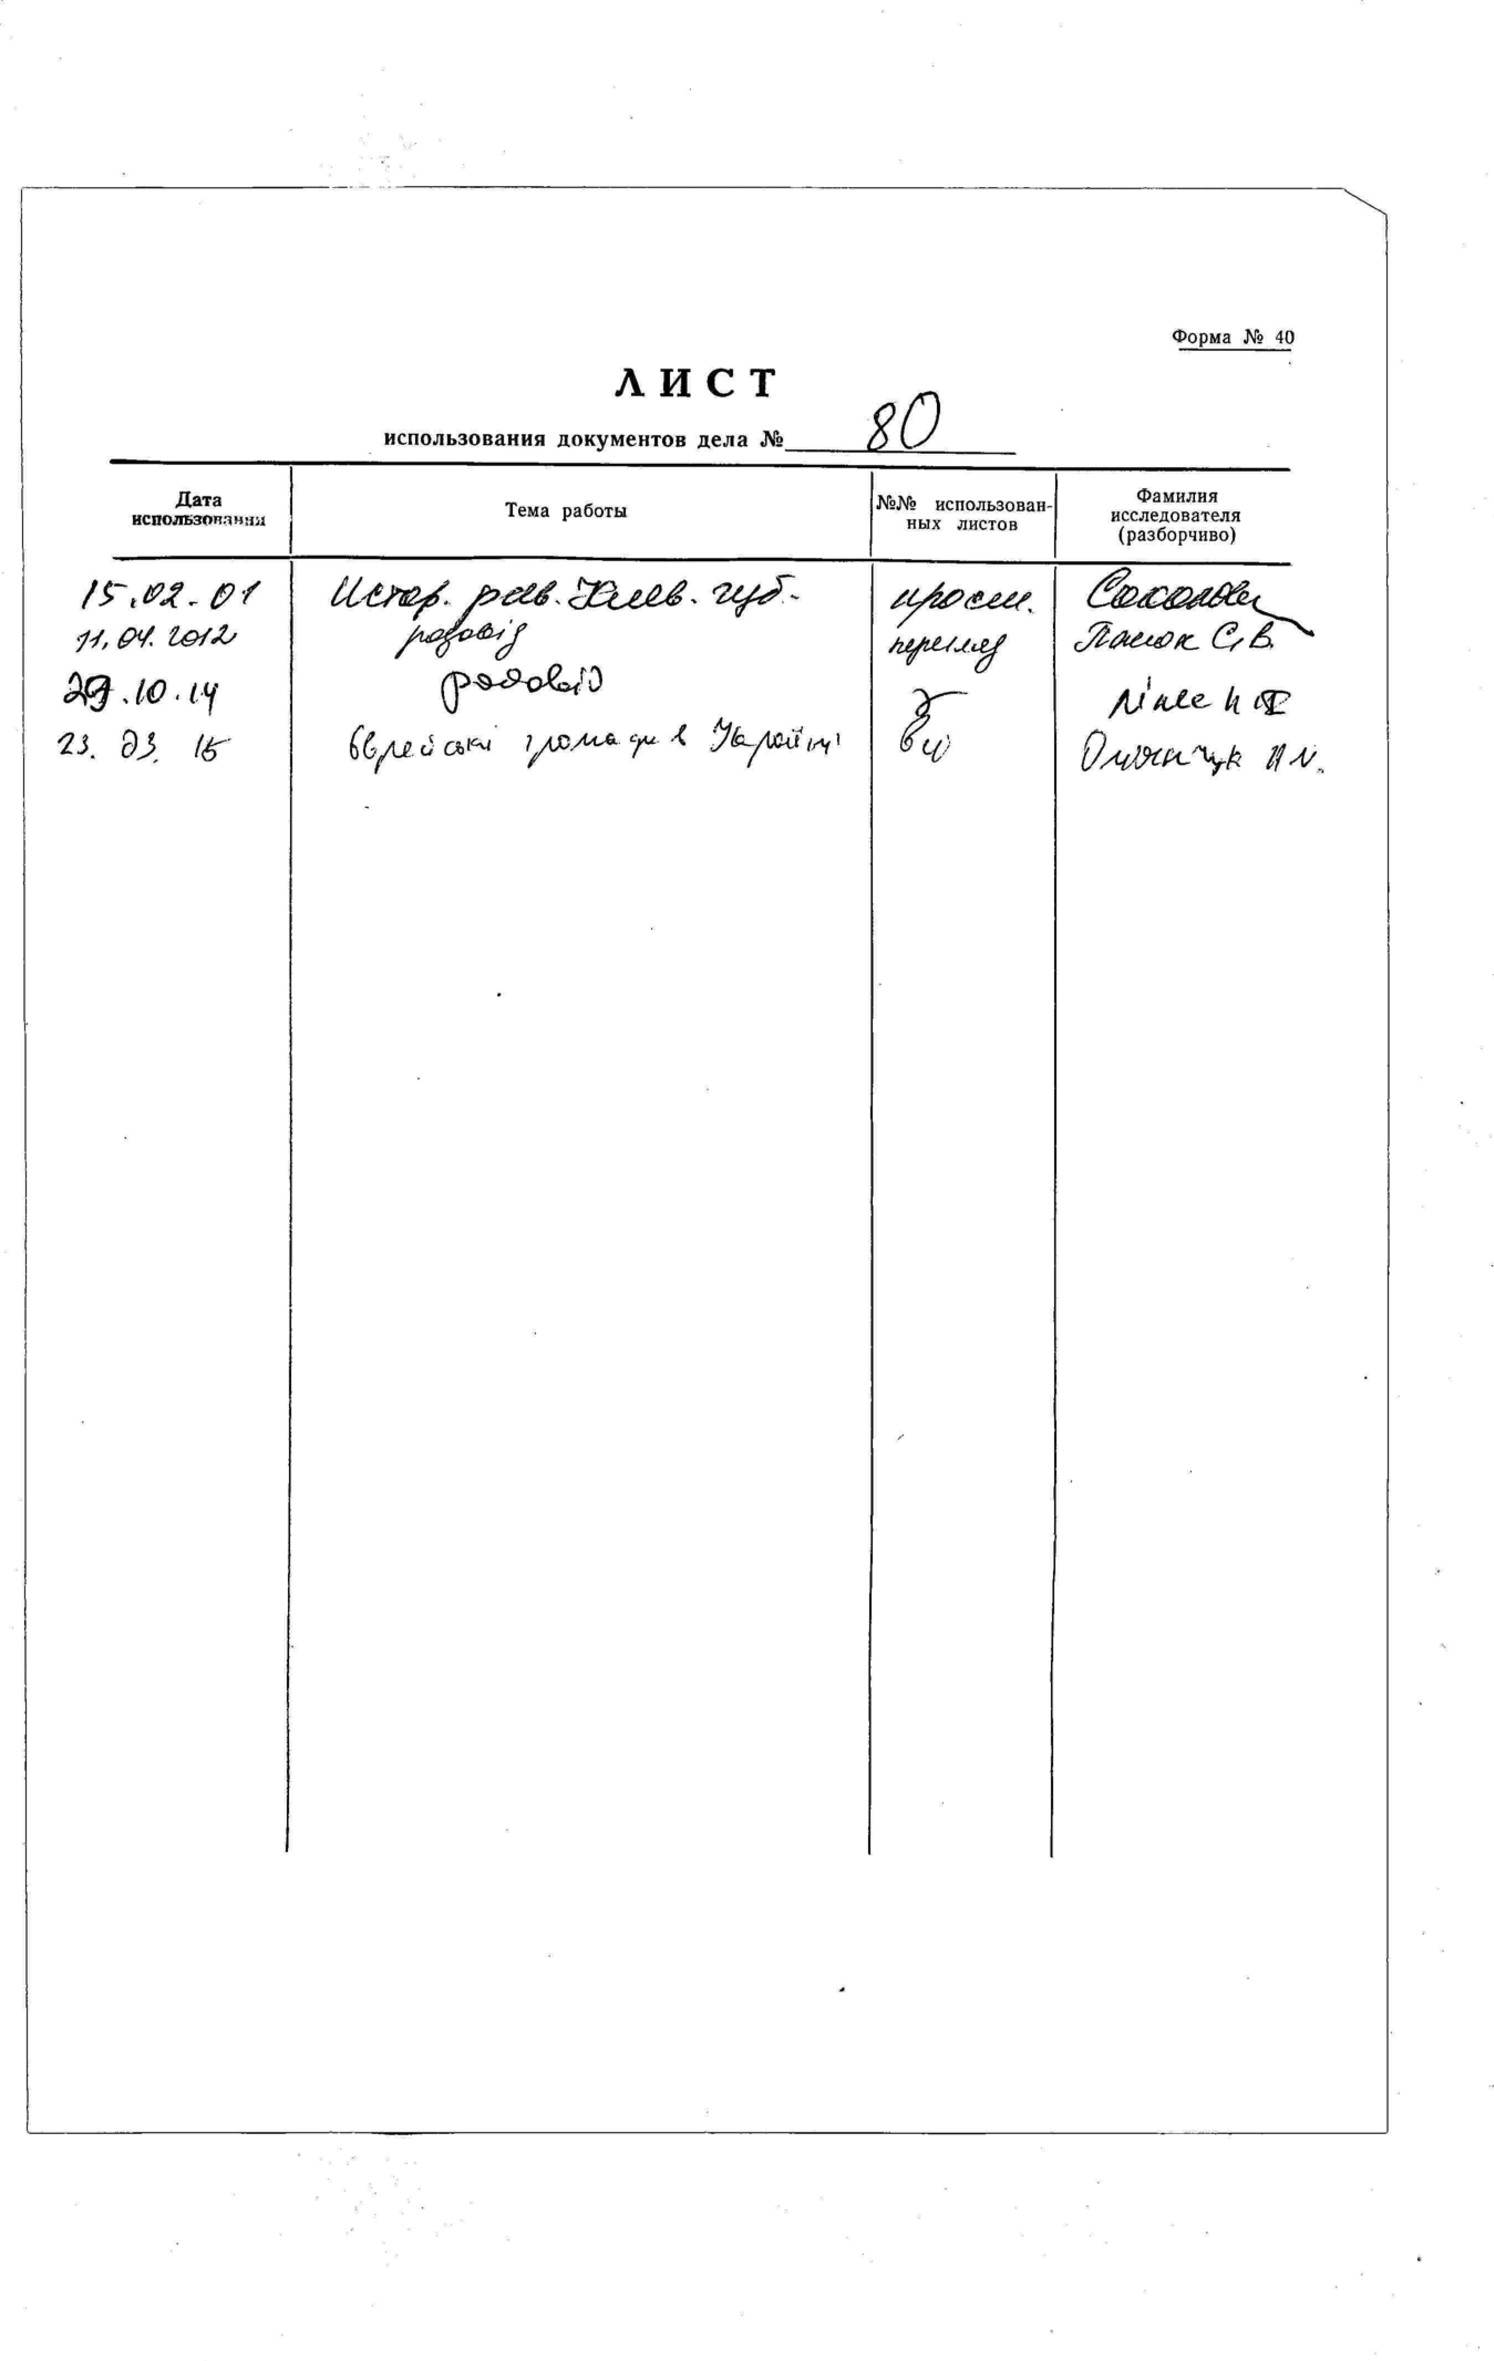 Форма № 40
ЛИСТ
использования документов дела № 80
Дата использования
Тема работы
№№ использован-
ных листов
Фамилия
исследователя
(разборчиво)
15.02.01 Истор. рев. Киев. губ. просм.
11.04.2012 родовід перегляд С.В.
29.10.14 родовід
23.03.15 Єврейські громади в Україні